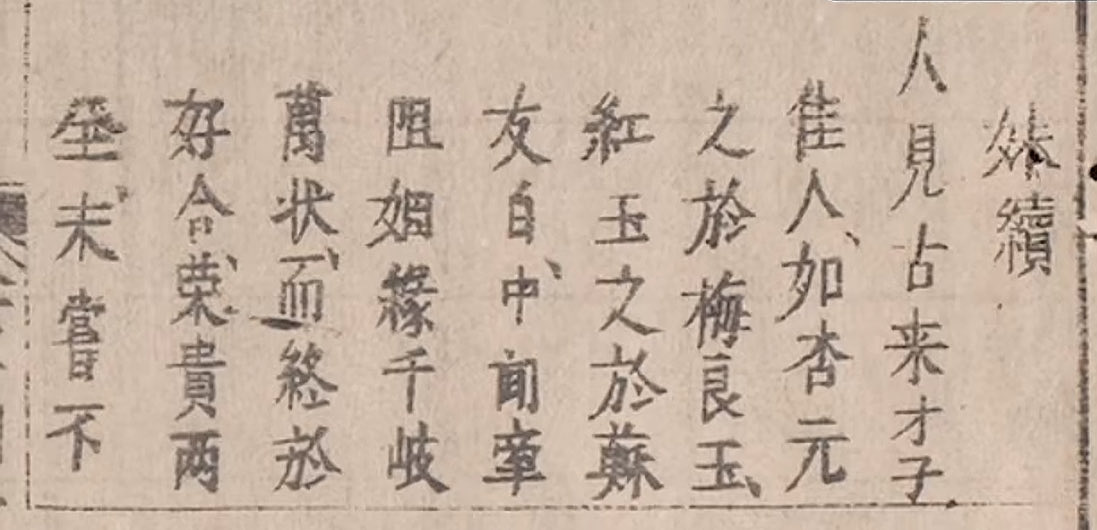 續
人見古来才子
佳人、如杏元
之於梅良玉、
紅玉之於蘇
友白、中間
阻姻緣千岐
萬状、而終於
好合、荣貴两
未嘗不